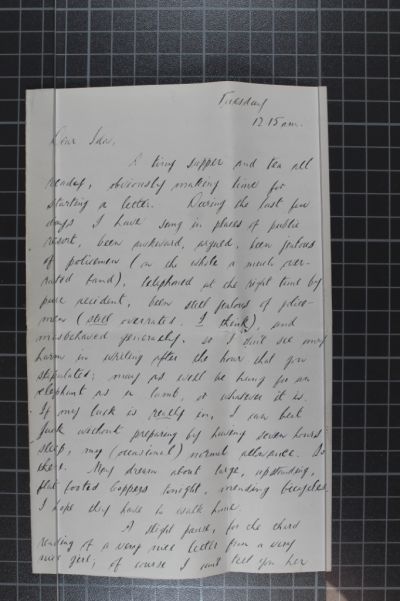 Tuesday
12.15 am.
Dear
A tiny supper and tea all
ready, obviously making time for
starting a letter. During the last few
days I have sung in places of public
resort, been awkward, argued, been jealous
of policemen (on the whole a much over-
rated band), telephoned at the right time by
pure accident, been still jealous of police-
men (still overrated, I think), and
misbehaved generally. so I don't see any
harm in writing after the hour that you
stipulated; may as well be hung for an
elephant as a lamb, or whatever it is.
If my luck is really in, I can beat
without preparing by having seven hours'
sleep, my (occasional) normal allowance. So
there. May dream about large, upstanding,
flat footed coppers tonight, mending bicycles.
I hope they have to walk home.
A slight pause, for the third
reading of a very nice letter from a very
nice girl; of course I can't tell you her